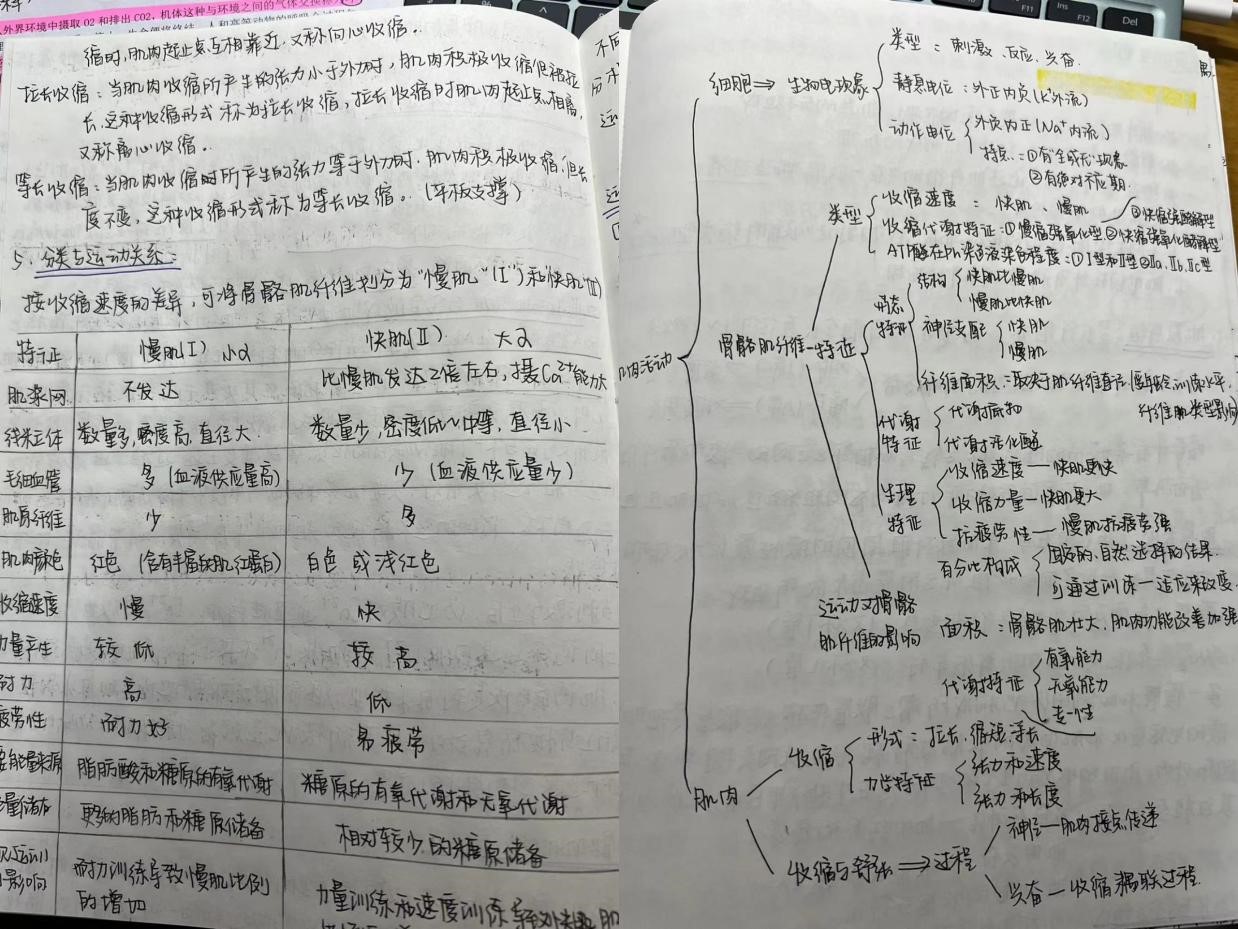 外界环境中摄取O2和排出CO2,机体这种与环境之间的气体交换称
缩时,肌肉起止点互相靠近,又称向心收缩。
拉长收缩:当肌肉收缩所产生的张力小于外力时,肌肉积极收缩但被拉
长,这种收缩形式称为拉长收缩,拉长收缩时肌肉起止点相离,
又称离心收缩。
等长收缩:当肌肉收缩时所产生的张力等于外力时,肌肉积极收缩,但长
度不变,这种收缩形式称为等长收缩。(平板支撑)
5、分类与运动关系:
按收缩速度的差异,可将骨骼肌纤维划分为"慢肌"(I")和快肌"(II)
特征 慢肌(I) 小α 快肌(II) 大α
肌浆网 不发达 比慢肌发达2倍左右,摄Ca²⁺能力大
线粒体 数量多,密度高,直径大. 数量少,密度低~中等,直径小
毛细血管 多(血液供应量高) 少(血液供应量少)
肌原纤维 少 多
肌肉颜色 红色(含有丰富的肌红蛋白) 白色或浅红色
收缩速度 慢 快
力量产生 较低 较高
耐力 高 低
疲劳性 耐力好 易疲劳
能量来源 脂肪酸和糖原的有氧代谢 糖原的有氧代谢和无氧代谢
量储存 更多的脂肪和糖原储备 相对较少的糖原储备
运训 耐力训练导致慢肌比例
影响 的增加 力量训练和速度训练导致快肌
Fn
F11
Ins
F12
Del
细胞⇒生物电现象
类型:刺激、反应、兴奋.
静息电位:外正内负(K⁺外流)
动作电位
外负内正(Na⁺内流)
特点:①有"全或无"现象
②有绝对不应期.
肌肉活动
骨骼肌纤维—特征
类型
收缩速度:快肌、慢肌
③快缩强酵解型
收缩代谢特征:①慢缩强氧化型.②快缩强氧化酵解型
ATP酶在pH染色液染色程度:①I型和II型②IIa、IIb、IIc型
形态
特征
结构
快肌比慢肌
慢肌比快肌
神经支配
快肌
慢肌
纤维面积:取决于肌纤维直径,年龄、训练水平,
纤维肌类型影响
代谢
特征
代谢底物
代谢活化酶
生理
特征
收缩速度—快肌更快
收缩力量—快肌更大
抗疲劳性—慢肌抗疲劳强
运动对骨骼
肌纤维的影响
百分比构成
自然选择的结果.
可通过训练—适应来改变.
面积:骨骼肌壮大,肌肉功能改善加强
代谢特征
有氧能力
无氧能力
专一性
肌肉
收缩
形式:拉长、缩短、等长
力学特征
张力和速度
张力和长度
收缩与舒张⇒过程
神经—肌肉接点传递
兴奋—收缩耦联过程.